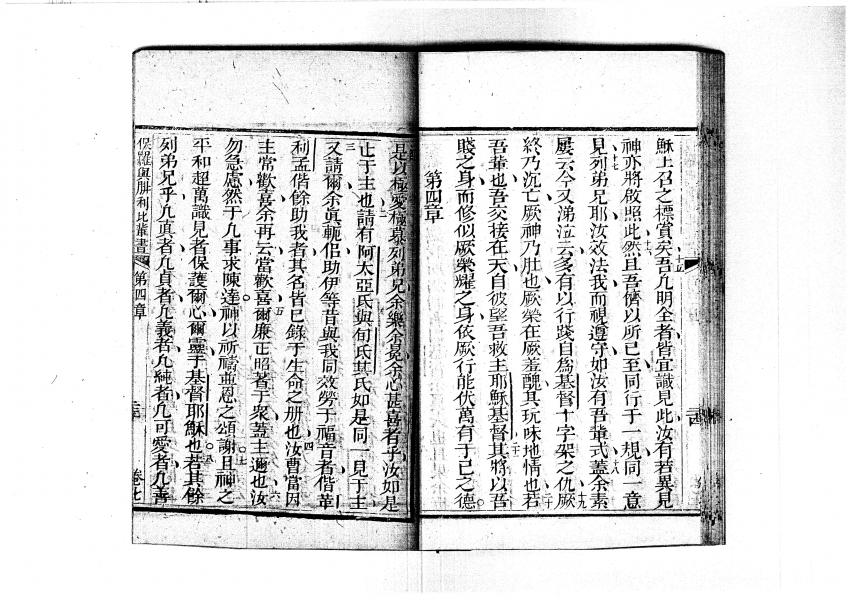 穌上召之標賞矣吾凡明全者皆宜識見此汝有若異見
神亦將啟照此然且吾儕以所已至同行于一規同一意
見列弟兄耶汝效法我而視遵守如汝有吾輩式蓋余素
屢云今又涕泣云多有以行踐自為基督十字架之仇厥
終乃沉亡厥神乃肚也厥榮在厥羞醜其玩味地情也若
吾輩也吾交接在天自彼望吾救主耶穌基督其將以吾
賤之身而修似厥榮耀之身依厥行能伏萬有于己之德
第四章
是以極愛極慕列弟兄余樂余冕余心甚喜者乎汝如是
止于主也請有阿太亞氏與旬氏其氏如是同一見于主
又請爾余真軛侶助伊等昔與我同效勞于福音者偕革
利孟偕餘助我者其名皆已錄于生命之册也汝曹當因
主常歡喜余再云當歡喜爾廉正昭著于衆蓋主邇也汝
勿急慮然于凡事求陳達神以祈禱並恩之頌謝且神之
平和超萬識見者保護爾心爾靈于基督耶穌也若其餘
列弟兄乎凡真者凡貞者凡義者凡純者凡可愛者凡善
保羅與腓利比輩書 第四章 卷七